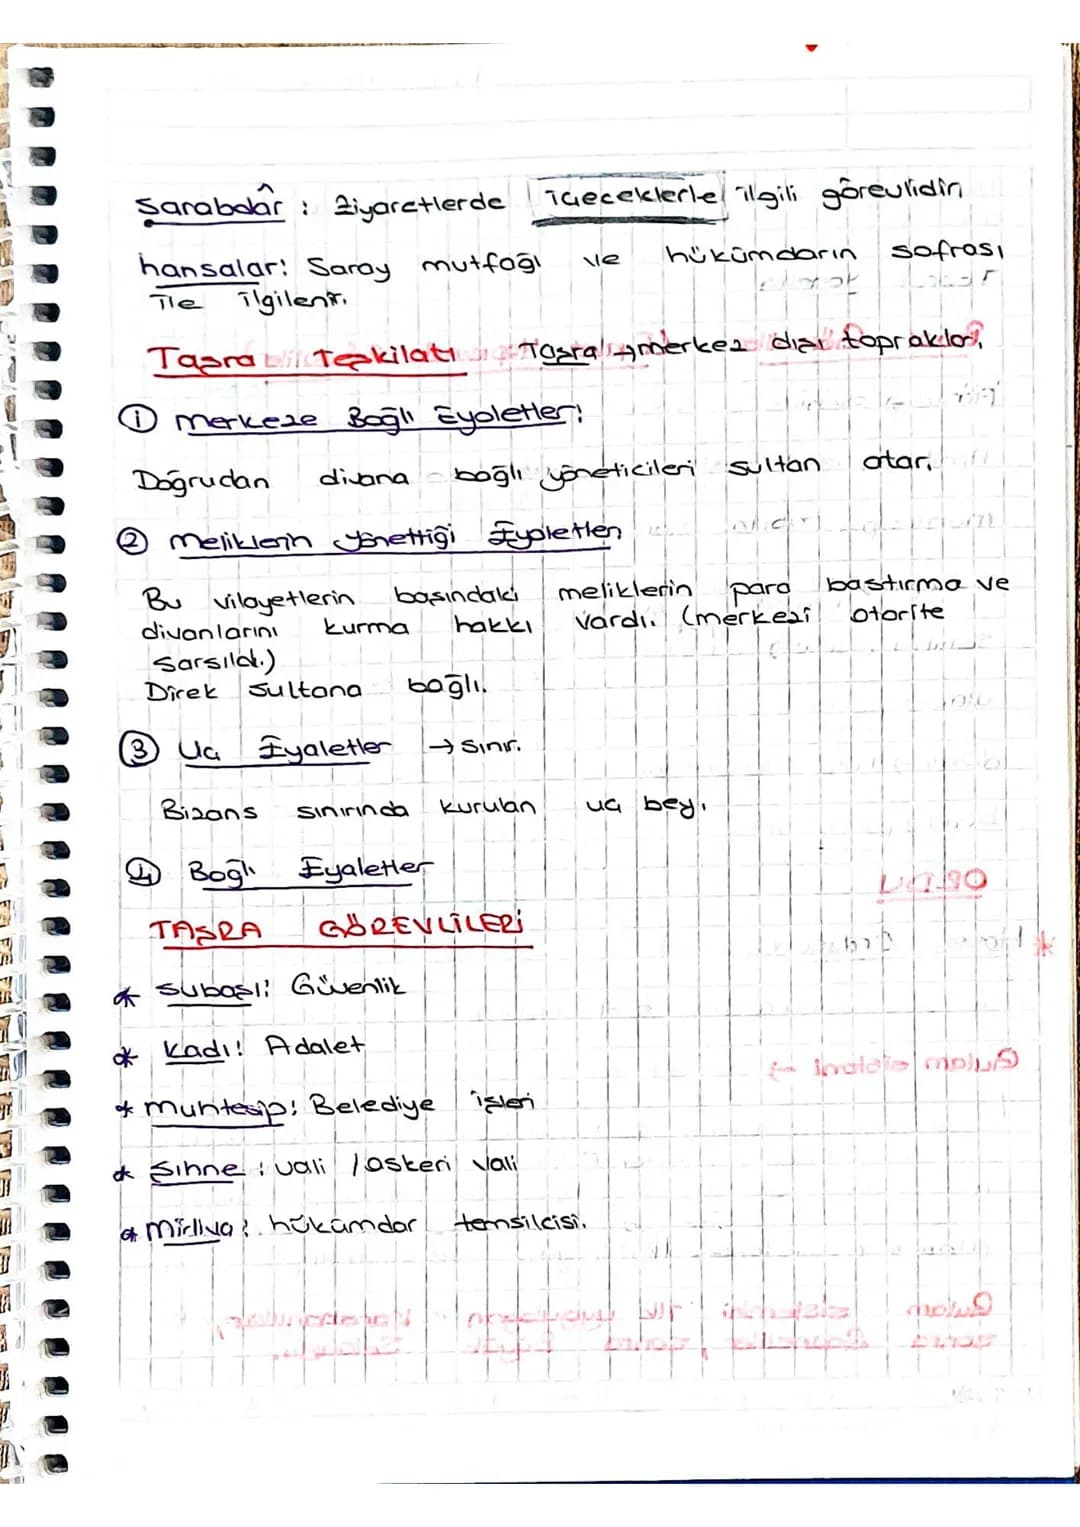 Şarabdâr : Ziyaretlerde içeceklerle ilgili görevlidir.
hansalar: Saray mutfağı ve hükümdarın sofrası
ile ilgilenir.
Taşra Teşkilatı Taşra → merkez dışı topraklar.
① merkeze Bağlı Eyaletler:
Doğrudan divana bağlı yöneticileri sultan atar.
② meliklerin yönettiği Eyaletler
Bu vilayetlerin başındaki meliklerin para bastırma ve
divanlarını kurma hakkı vardı. (merkezî otorite
sarsıldı.)
Direk sultana bağlı.
③ Uç Eyaletler → sınır.
Bizans sınırında kurulan uç beyi
④ Bağlı Eyaletler
TAŞRA GÖREVLİLERİ
* subaşı: Güvenlik
* kadı: Adalet
* muhtesip: Belediye işleri
* şıhne : vali / askeri vali
* mirliva : hükümdar temsilcisi.